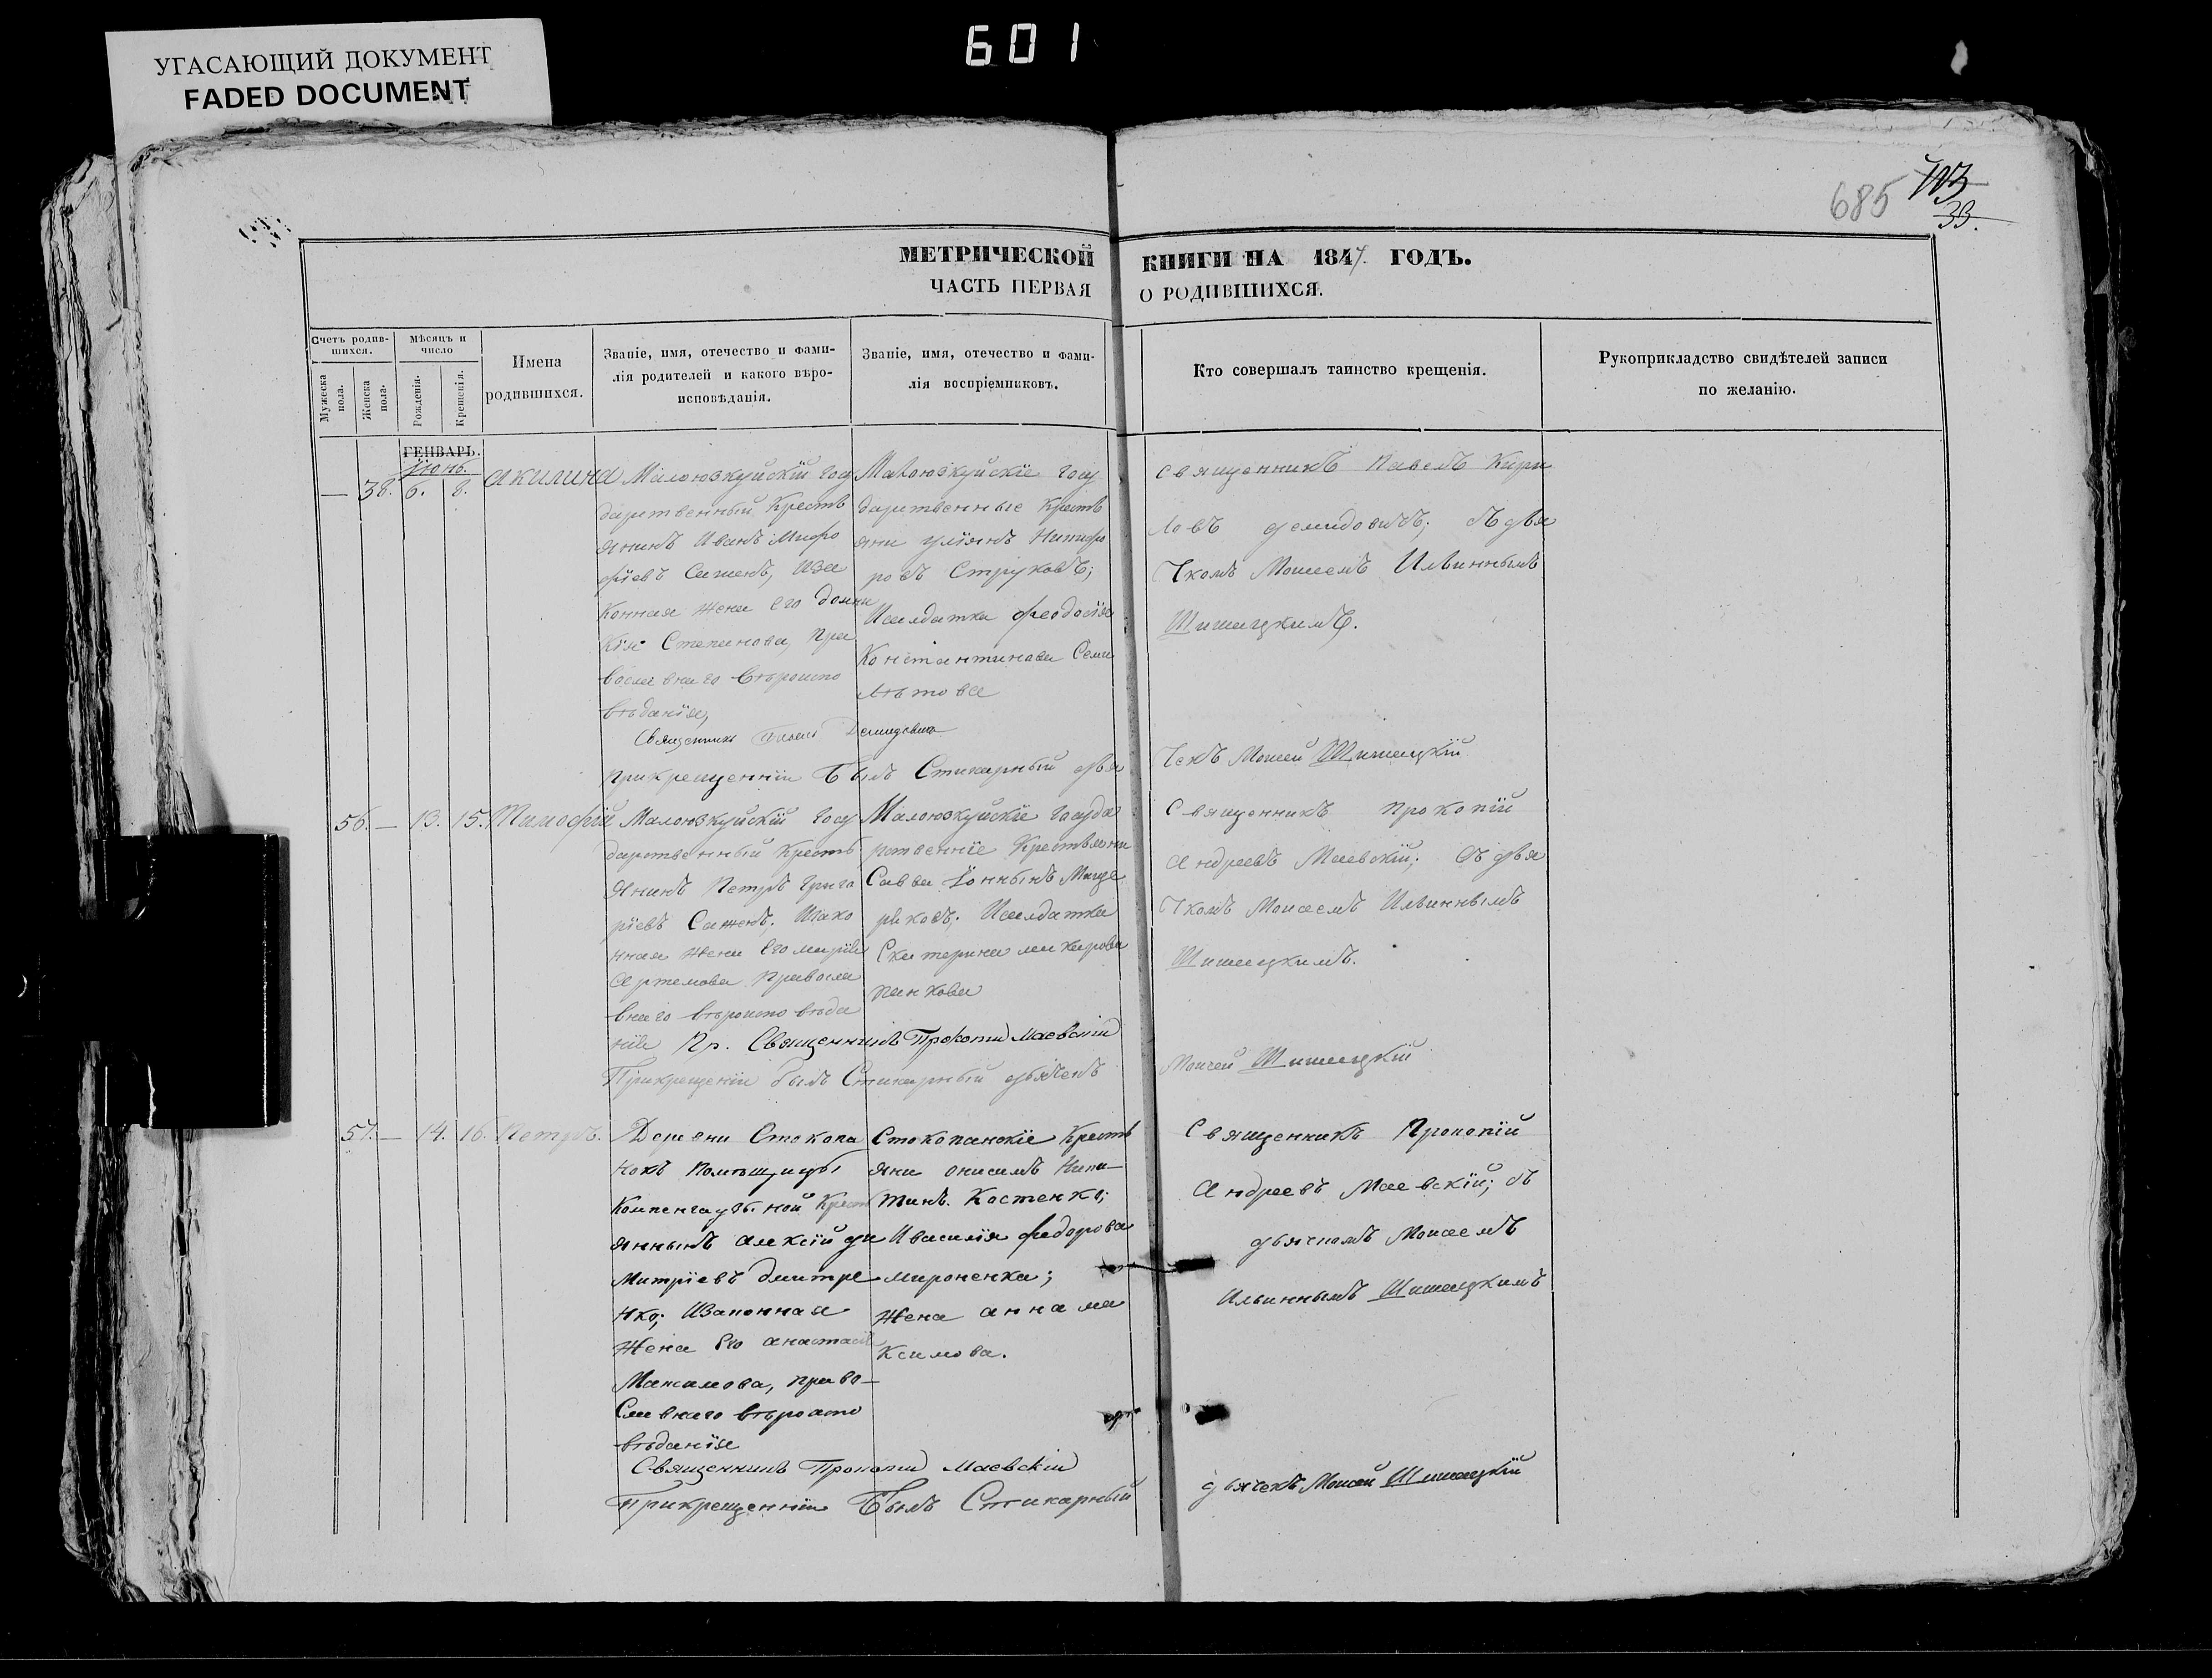 601
УГАСАЮЩИЙ ДОКУМЕНТ
FADED DOCUMENT
685
33.
МЕТРИЧЕСКОЙ КНИГИ НА 1847 ГОДЪ.
ЧАСТЬ ПЕРВАЯ О РОДИВШИХСЯ.
Счетъ родив-
шихся.
Мужеска пола.
Женска пола.
Мѣсяцъ и число
Рожденія.
Крещенія.
Имена
родившихся.
Званіе, имя, отечество и фами-
лія родителей и какого вѣро-
исповѣданія.
Званіе, имя, отечество и фами-
лія воспріемниковъ.
Кто совершалъ таинство крещенія.
Рукоприкладство свидѣтелей записи
по желанію.
ГЕНВАРЬ.
Іюнь.
— 38. 6. 8. Акилина
Малоюзкуйскій Госу
дарственный Кресть
янинъ Иванъ
Сажень, Иза
конная жена его домни
кія Степанова, Пра
вославнаго вѣроиспо
вѣданія,
Священникъ Павелъ Демидовичъ
прикрещеніи Былъ Стихарный дья
Малоюзкуйскіе Госу
дарственные Кресть
яни Уліянъ Никифо
ровъ Струковъ;
Исалдатка феодосія
Константинова Семи
лѣтова
Священникъ Павелъ Кири
ловъ демидовичъ; съ дья
чкомъ Моисеемъ Ильиннымъ
Шишацкимъ.
чекъ Моисей Шишацкій
56. — 13. 15. Тимофій
Малоюзкуйскій Госу
дарственный Кресть
янинъ Петръ Григо
ріевъ Сажень, Изако
нная жена Его марія
Артемова Правосла
внаго вѣроиспо вѣда
нія Пр. Священникъ Прокопій Маевскій
Прикрещеніи былъ Стихарный дьячекъ
Малоюзкуйскіе Госуда
рственніе Крестьяни
Савва Мище
ряковъ; Исалдатка
Екатерина макарова
панкова
Священникъ Прокопій
Андреевъ Маевскій; съ дья
чкомъ Моисеемъ Ильиннымъ
Шишацкимъ.
Моисей Шишацкій
57. — 14. 16. Петръ.
Деревни Стокопа
нокъ Помѣщицы
Крест
янинъ Алексій ди
митріевъ дмитре
нко; Изаконная
жена Его анастасія
Максимова, право
славнаго вѣроиспо
вѣданія
Священникъ Прокопій Маевскій
Прикрещенніи Былъ Стихарный
Стокопанскіе Кресть
яни онисимъ Ники—
тинъ. Костенко;
Ивасилія федорова
мироненка;
жена анна ма
ксимова.
Священникъ Прокопій
Андреевъ Маевскій; съ
дьячкомъ Моисеемъ
Ильиннымъ Шишацкимъ
дьячекъ Моисей Шишацкій